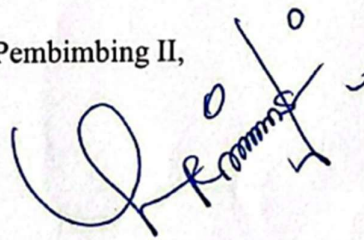 Pembimbing II,